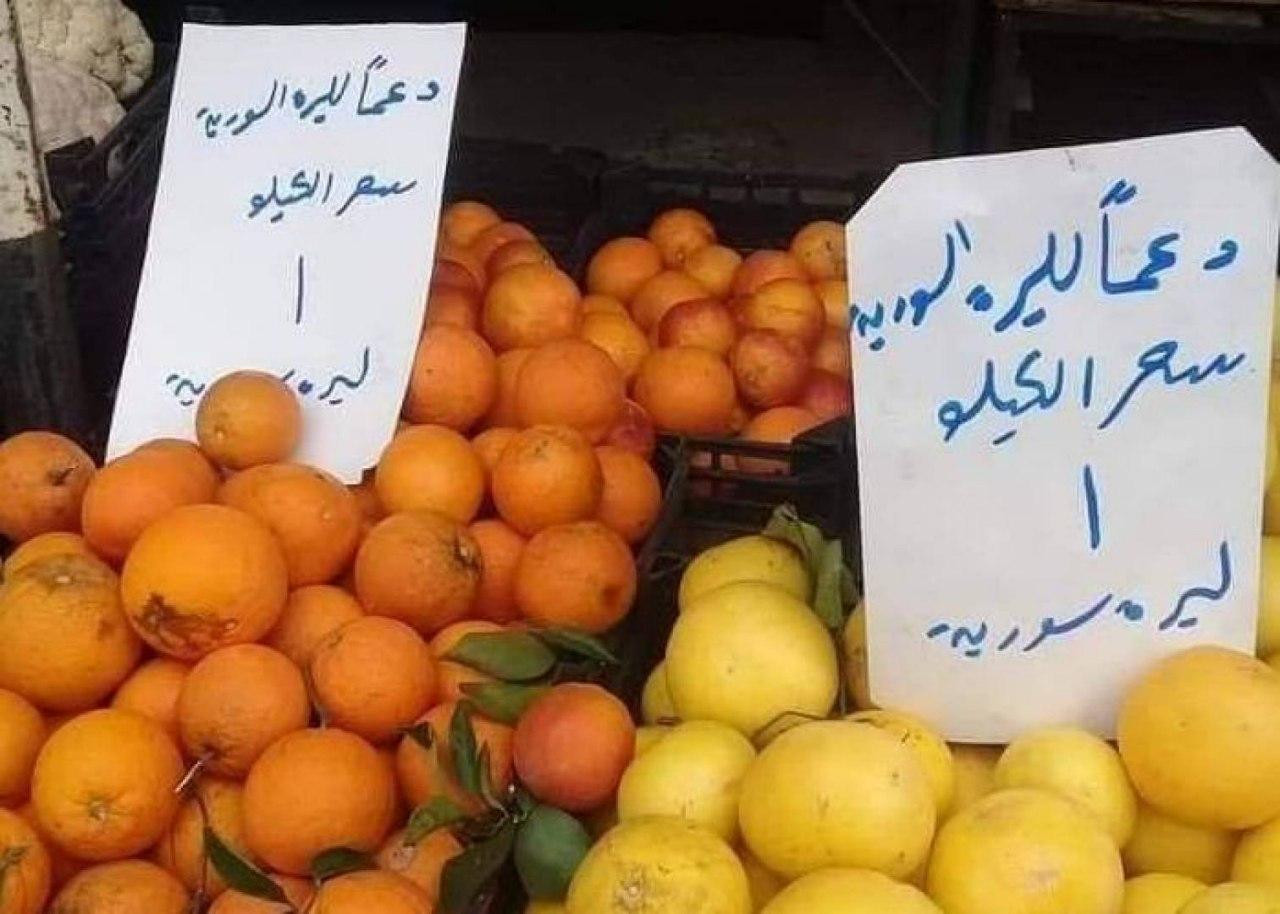 دعماً لليرة السورية
سعر الكيلو
١
ليرة سورية
دعماً لليرة السورية
سعر الكيلو
١
ليرة